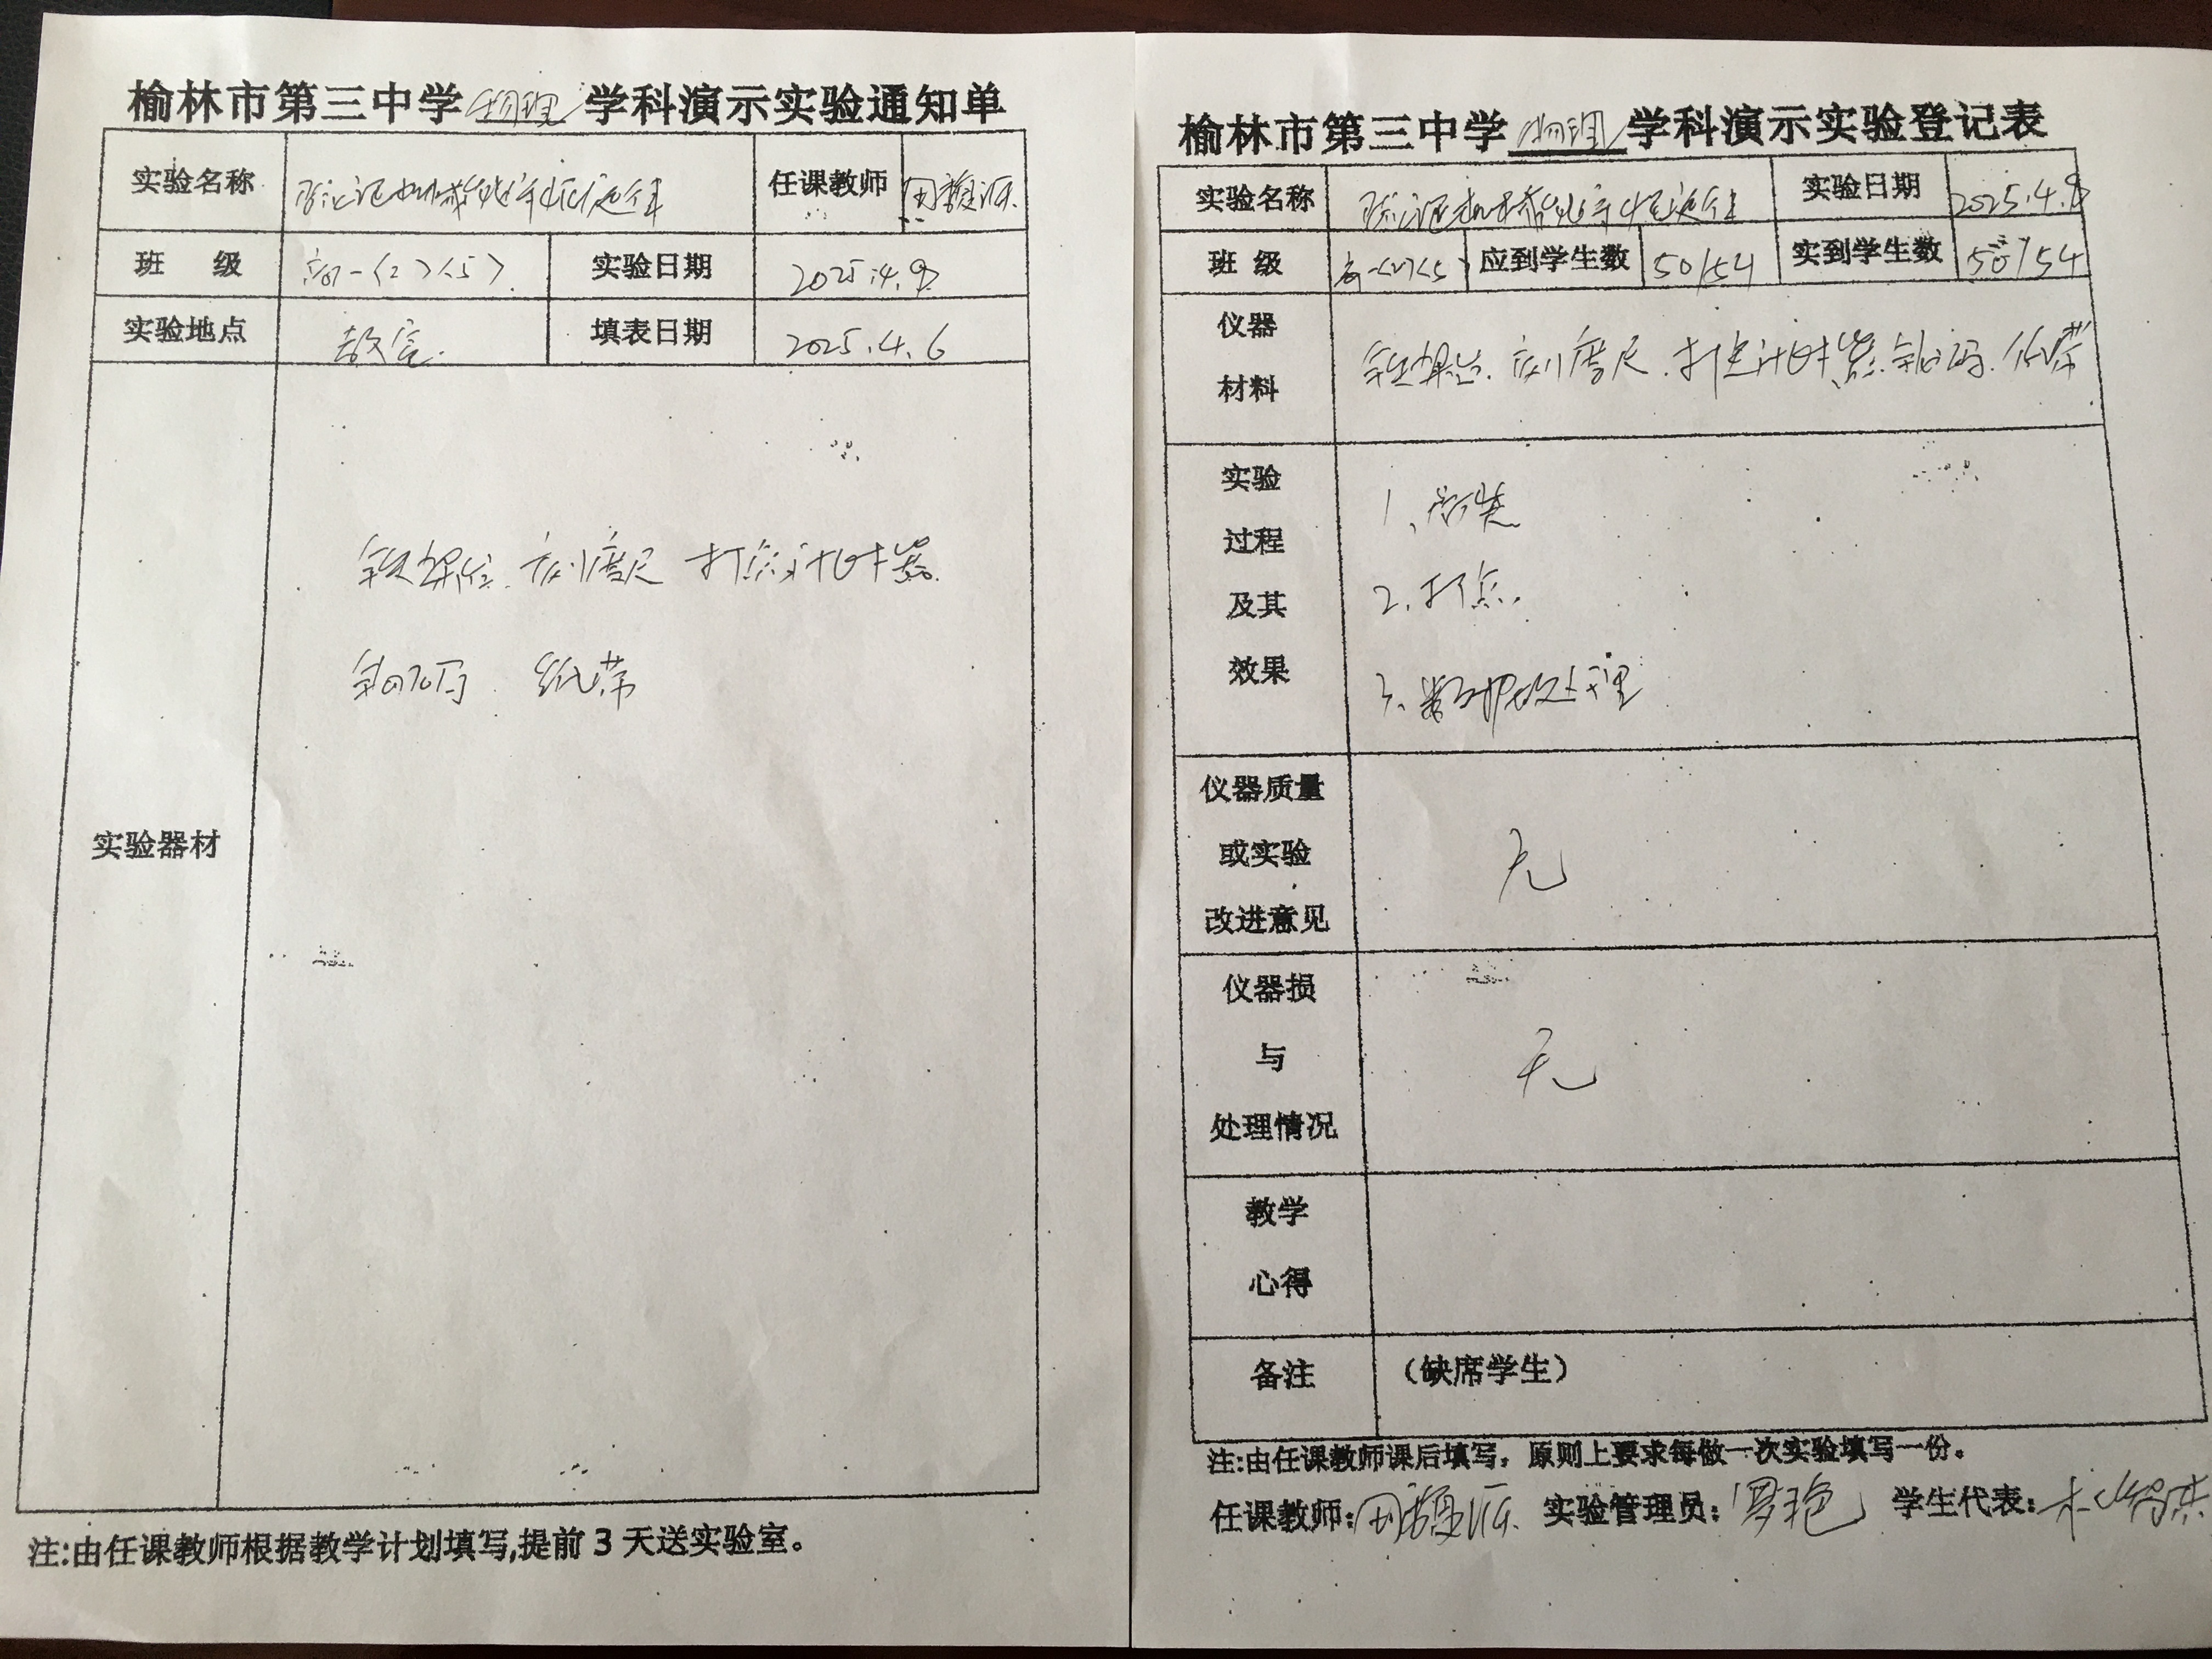 榆林市第三中学物理学科演示实验通知单
实验名称 验证机械能守恒定律 任课教师
班 级 高一〈2〉〈5〉 实验日期 2025.4.9
实验地点 教室 填表日期 2025.4.6
实验器材
铁架台 刻度尺 打点计时器
钩码 纸带
注:由任课教师根据教学计划填写,提前3天送实验室。
榆林市第三中学物理学科演示实验登记表
实验名称 验证机械能守恒定律 实验日期 2025.4.9
班 级 高一〈2〉〈5〉 应到学生数 50/54 实到学生数 50/54
仪器
材料
铁架台.刻度尺.打点计时器.钩码.纸带
实验
过程
及其
效果
1、安装
2、打点.
3、数据处理
仪器质量
或实验
改进意见
无
仪器损
与
处理情况
无
教学
心得
备注 (缺席学生)
注:由任课教师课后填写，原则上要求每做一次实验填写一份。
任课教师: 实验管理员:罗艳 学生代表: